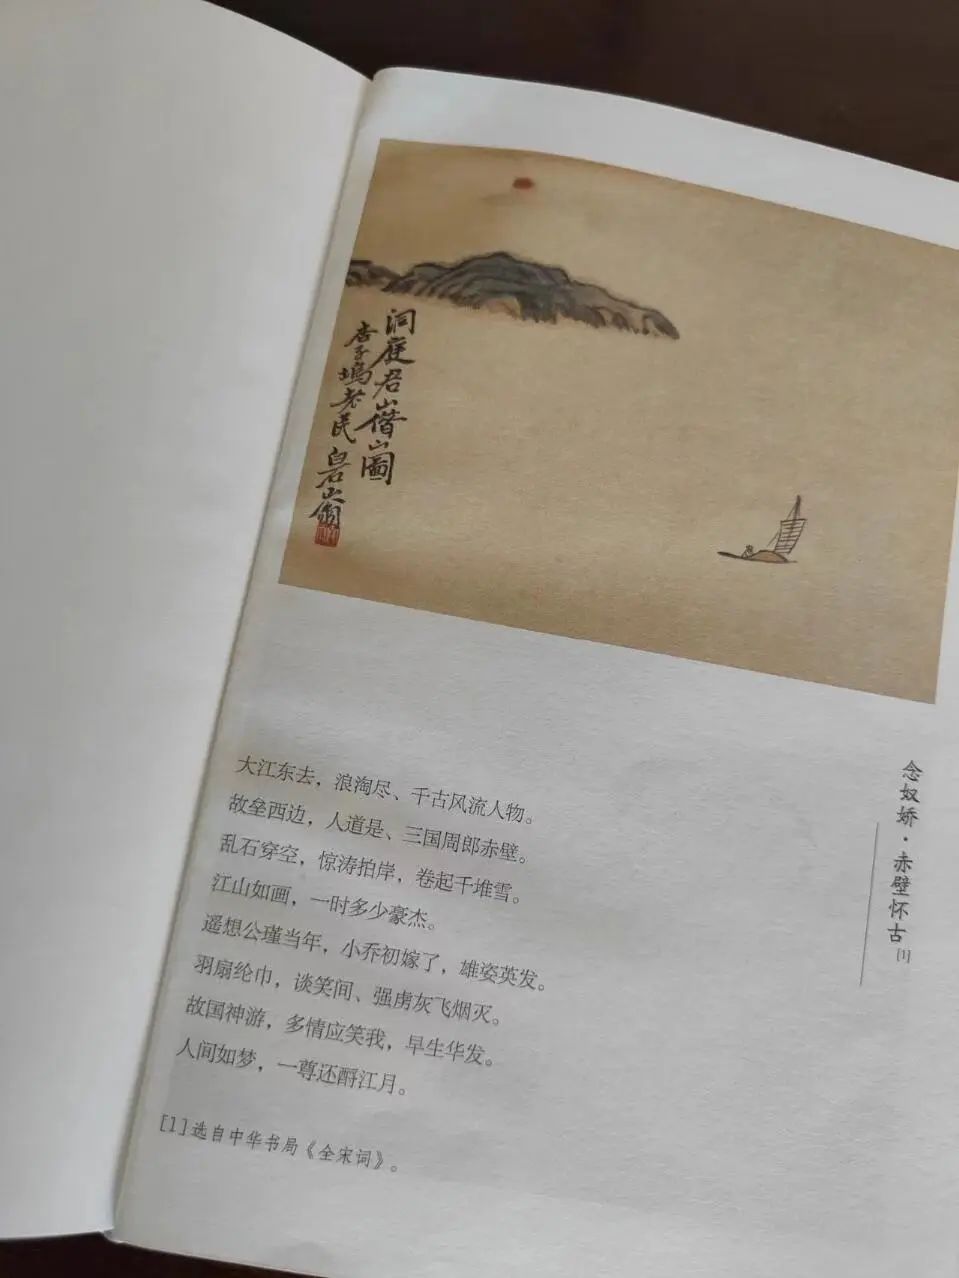 洞庭君山借山圖
杏子塢老民白石山翁
念奴娇·赤壁怀古[1]
大江东去，浪淘尽、千古风流人物。
故垒西边，人道是、三国周郎赤壁。
乱石穿空，惊涛拍岸，卷起千堆雪。
江山如画，一时多少豪杰。
遥想公瑾当年，小乔初嫁了，雄姿英发。
羽扇纶巾，谈笑间、强虏灰飞烟灭。
故国神游，多情应笑我，早生华发。
人间如梦，一尊还酹江月。
[1]选自中华书局《全宋词》。